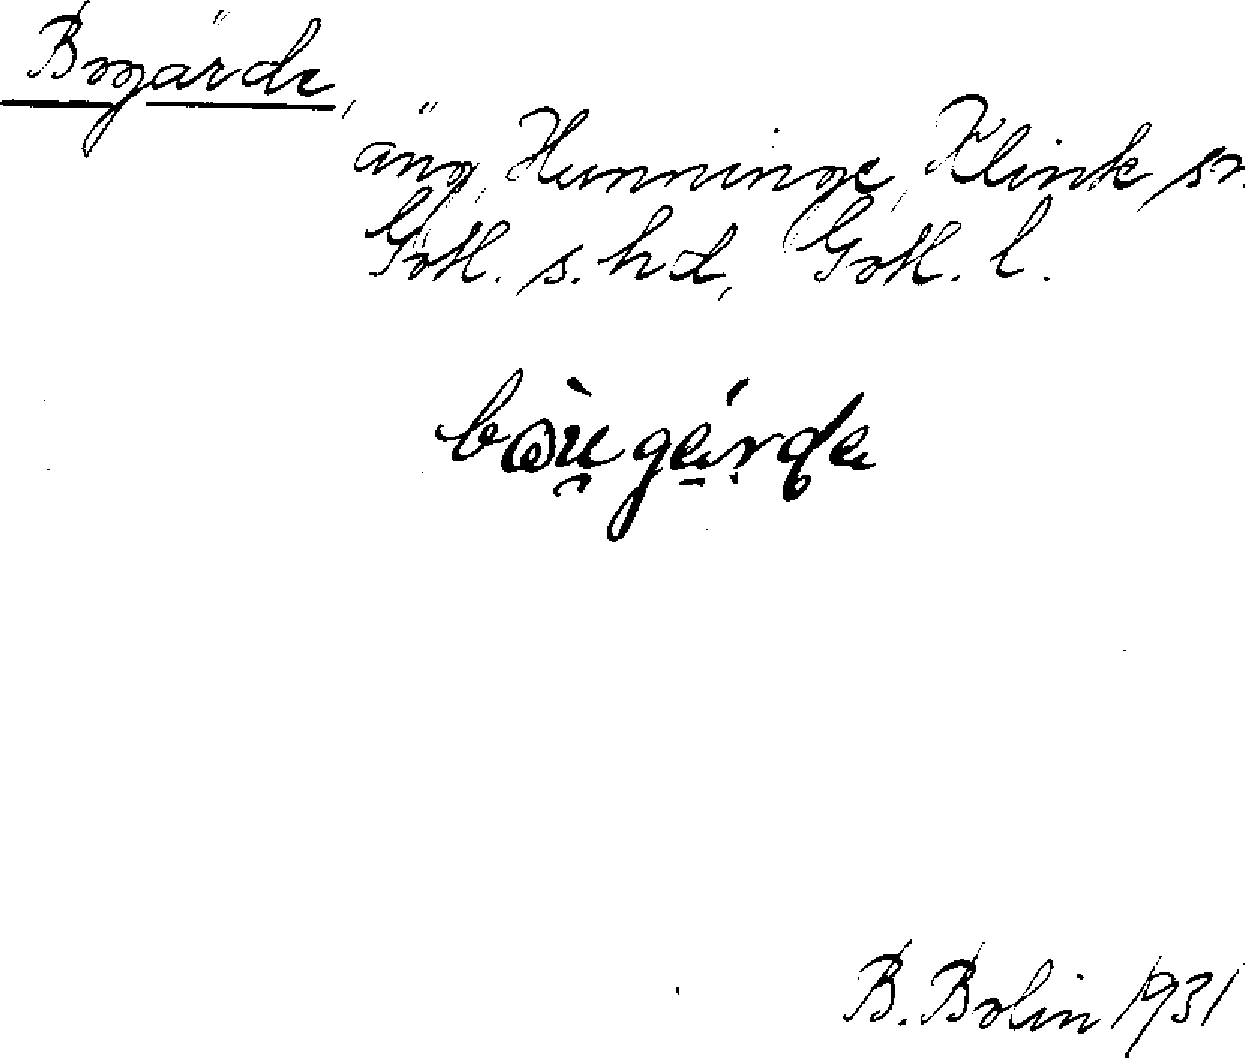 Bogärde,
äng, Hunninge, Klinte sn.
Gotl. s. hd, Gotl. l.
bòu̯gǽrda
B. Bolin 1931